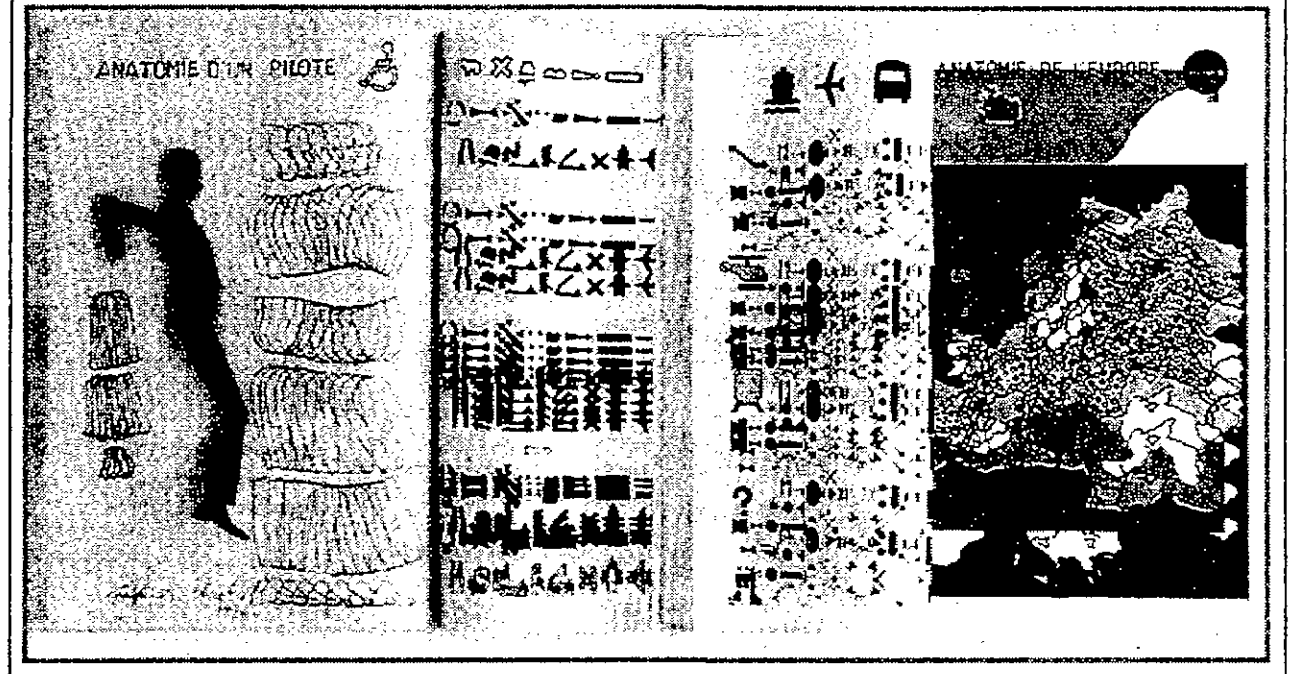 ANATOMIE D'UN PILOTE
ANATOMIE DE L'EUROPE